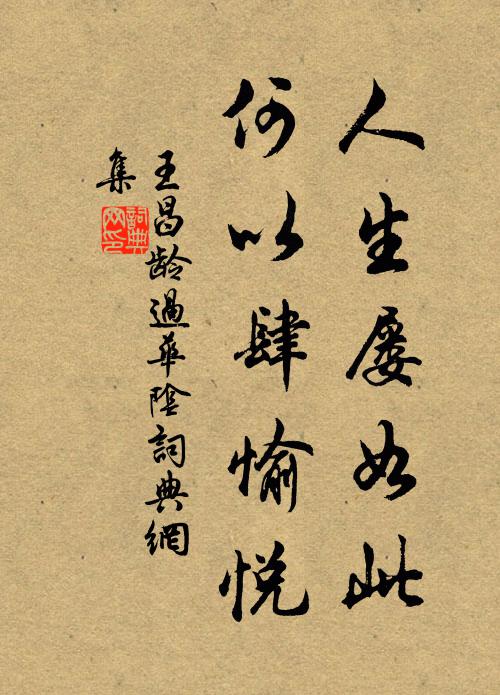 人生屡如此
何以肆愉悦
王昌龄過華陰詞典網
集
詞典网印